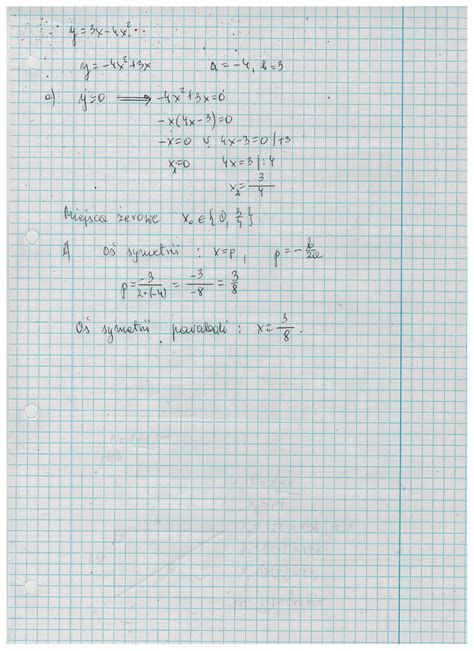 y=3x-4x².
y=-4x²+3x a=-4, b=3
a) y=0 ⟹ -4x²+3x=0
-x(4x-3)=0
-x=0 ∨ 4x-3=0 |+3
x=0 4x=3 |:4
x₂=3/4
Miejsca zerowe x₀∈{0, 3/4}
b) oś symetrii : x=p, p=-b/2a
p=-3/2·(-4) = -3/-8 = 3/8
Oś symetrii paraboli : x=3/8.